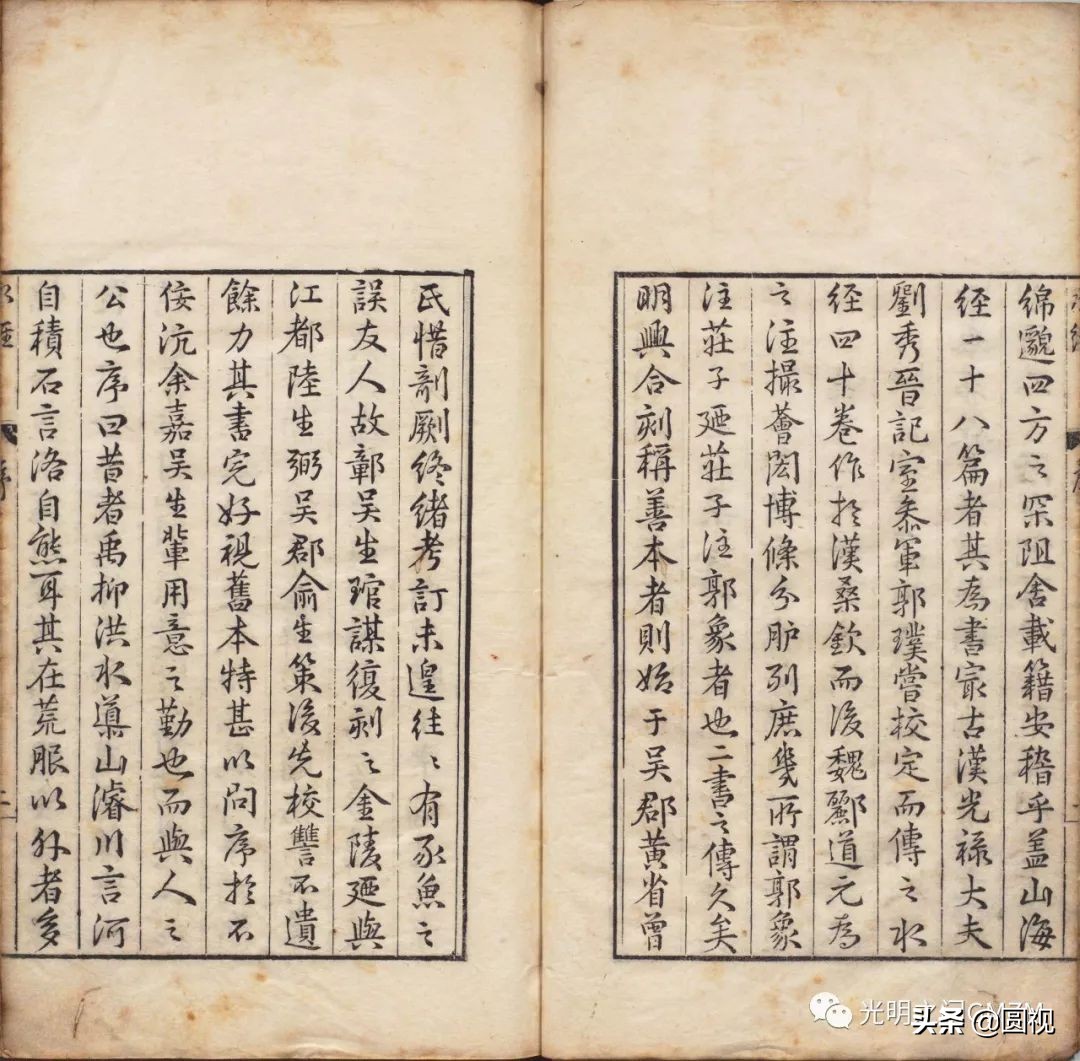 綿邈四方之罙阻舍載籍安稽乎盖山海
經一十八篇者其為書㝡古漢光禄大夫
劉秀晉記室叅軍郭璞嘗校定而傳之水
經四十卷作扵漢桑欽而後魏酈道元為
之注撮薈閎博條分胪列庶幾所謂郭象
注莊子廼莊子注郭象者也二書之傳久矣
明興合刻稱善本者則始于吳郡黄省曾
氏惜剞劂終緒考訂未遑往〻有豕魚之
誤友人故鄣吳生琯謀復刻之金陵廼與
江都陸生弼吳郡俞生策後先校讐不遺
餘力其書完好視舊本特甚以問序扵不
佞沆余嘉吳生輩用意之勤也而與人之
公也序曰昔者禹抑洪水導山濬川言河
自積石言洛自熊耳其在荒服以外者多
光明之门GMZM
头条 @圆视